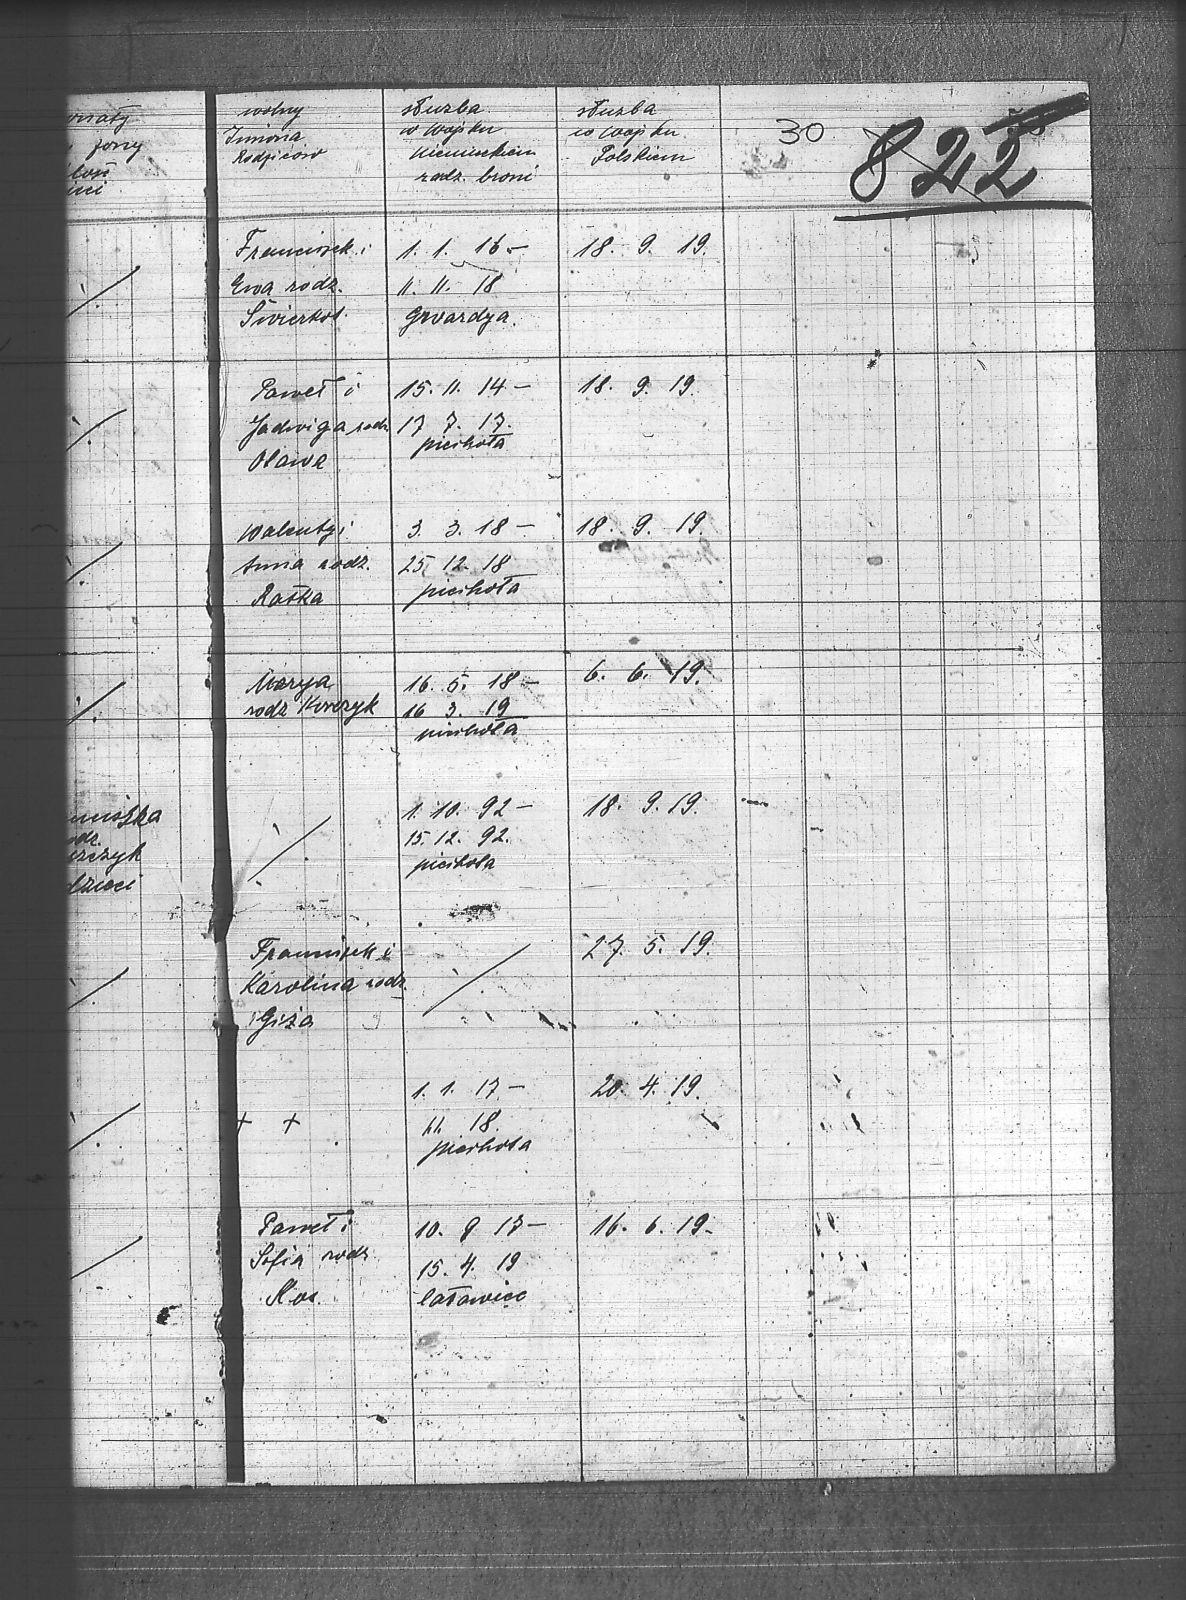 wolny
Imiona
Rodziców
służba
w Wojsku
Niemieckiem
rodz. broni
służba
w Wojsku
Polskiem
30
822
żony
Franciszek i
Ewa rodz.
Świerkot
1. 1. 16 –
11. 11. 18
Gwardya.
18. 9. 19.
Paweł i
Jadwiga rodz
Oława
15. 11. 14 –
17 7. 17.
piechota
18. 9. 19.
Walenty i
Anna rodz.
Raśka
3. 3. 18 –
25. 12. 18
piechota
18. 9. 19.
Marya
rodz
16. 5. 18 –
16 3. 19
piechota
6. 6. 19.
dzieci
1. 10. 92 –
15. 12. 92.
piechota
18. 9. 19.
Franciszek i
Karolina rodz.
Giża
/
27. 5. 19.
+ +
1. 1. 17 –
11. 18.
piechota
20. 4. 19.
Paweł i
Sofia rodz
Kos.
10. 9 17 –
15. 4. 19
latawiec
16. 6. 19.